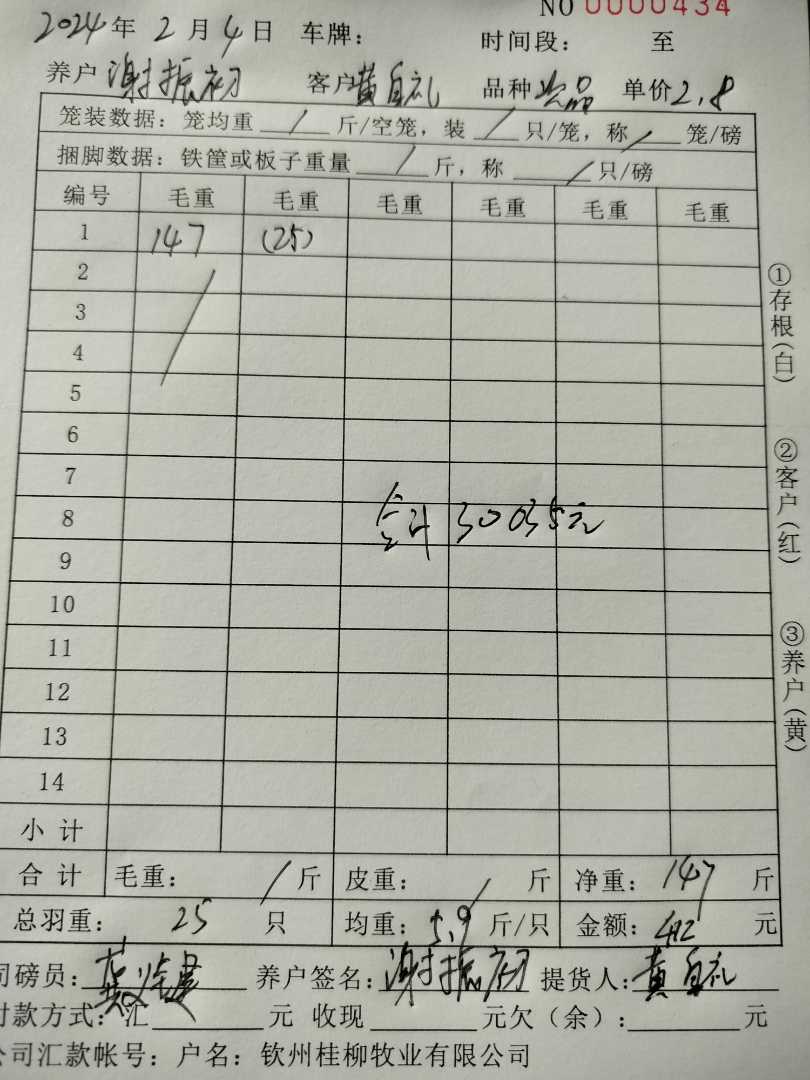 NO 0000434
2024年 2月4日 车牌: 时间段: 至
养户 谢振初 客户 黄自礼 品种 次品 单价 2.8
笼装数据: 笼均重 / 斤/空笼, 装 / 只/笼, 称 / 笼/磅
捆脚数据: 铁筐或板子重量 / 斤, 称 / 只/磅
编号 毛重 毛重 毛重 毛重 毛重 毛重
1 147 (25)
2
3
4
5
6
7
8 合计 30035元
9
10
11
12
13
14
小计
合计 毛重: / 斤 皮重: / 斤 净重: 147 斤
总羽重: 25 只 均重: 5.9 斤/只 金额: 412 元
司磅员: 养户签名: 谢振初 提货人: 黄自礼
付款方式: 汇 元 收现 元欠(余): 元
公司汇款帐号: 户名: 钦州桂柳牧业有限公司
①存根(白)
②客户(红)
③养户(黄)